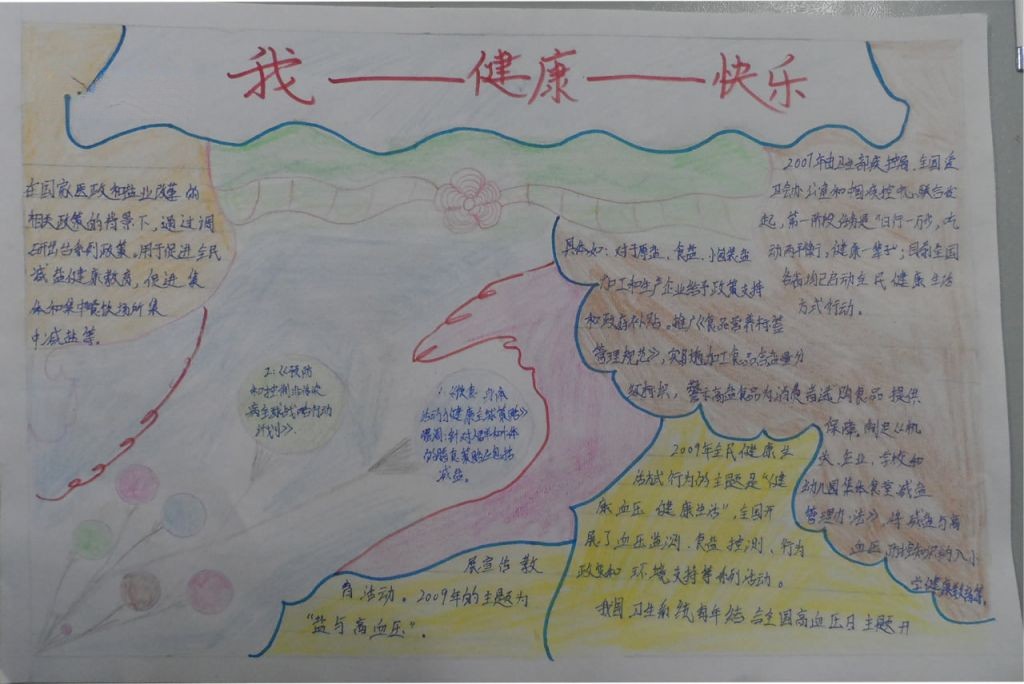 我——健康——快乐
在国家医改和盐业改革的
相关政策的背景下，通过调
研出台系列政策。用于促进全民
减盐健康教育，促进集
体和集中餐饮场所集
中减盐等。
2007年由卫生部疾控局、全国爱
卫会办公室和中国疾控中心联合发
起，第一阶段活动是"日行一万步，吃
动两平衡，健康一辈子"；目前全国
各省均已启动全民健康生活
方式行动。
具体如：对于原盐、食盐、小包装盐
加工和生产企业给予政策支持
和政府补贴。推广《食品营养标签
管理规范》，实行加工食品盐含量分
级标识，警示高盐食品为消费者选购食品提供
保障。制定《机
关、企业，学校和
幼儿园集体食堂减盐
管理办法》，将减盐与高
血压防控知识纳入小
学健康教育等。
2：《预防
和控制非传染
病全球战略行动
计划》.
1：《饮食、身体
活动与健康全球策略》
强调：针对人群和个体
的膳食策略应包括
减盐。
2009年全民健康生
活方式行为的主题是"健
康血压 健康生活"，全国开
展了血压监测、食盐控制、行为
改变和环境支持等系列活动。
我国卫生系统每年结合全国高血压日主题开
展宣传教
育活动。2009年的主题为
"盐与高血压"。